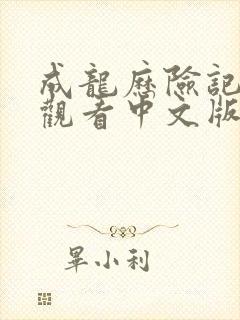 成龍歷險記
觀看中文版
畢小利